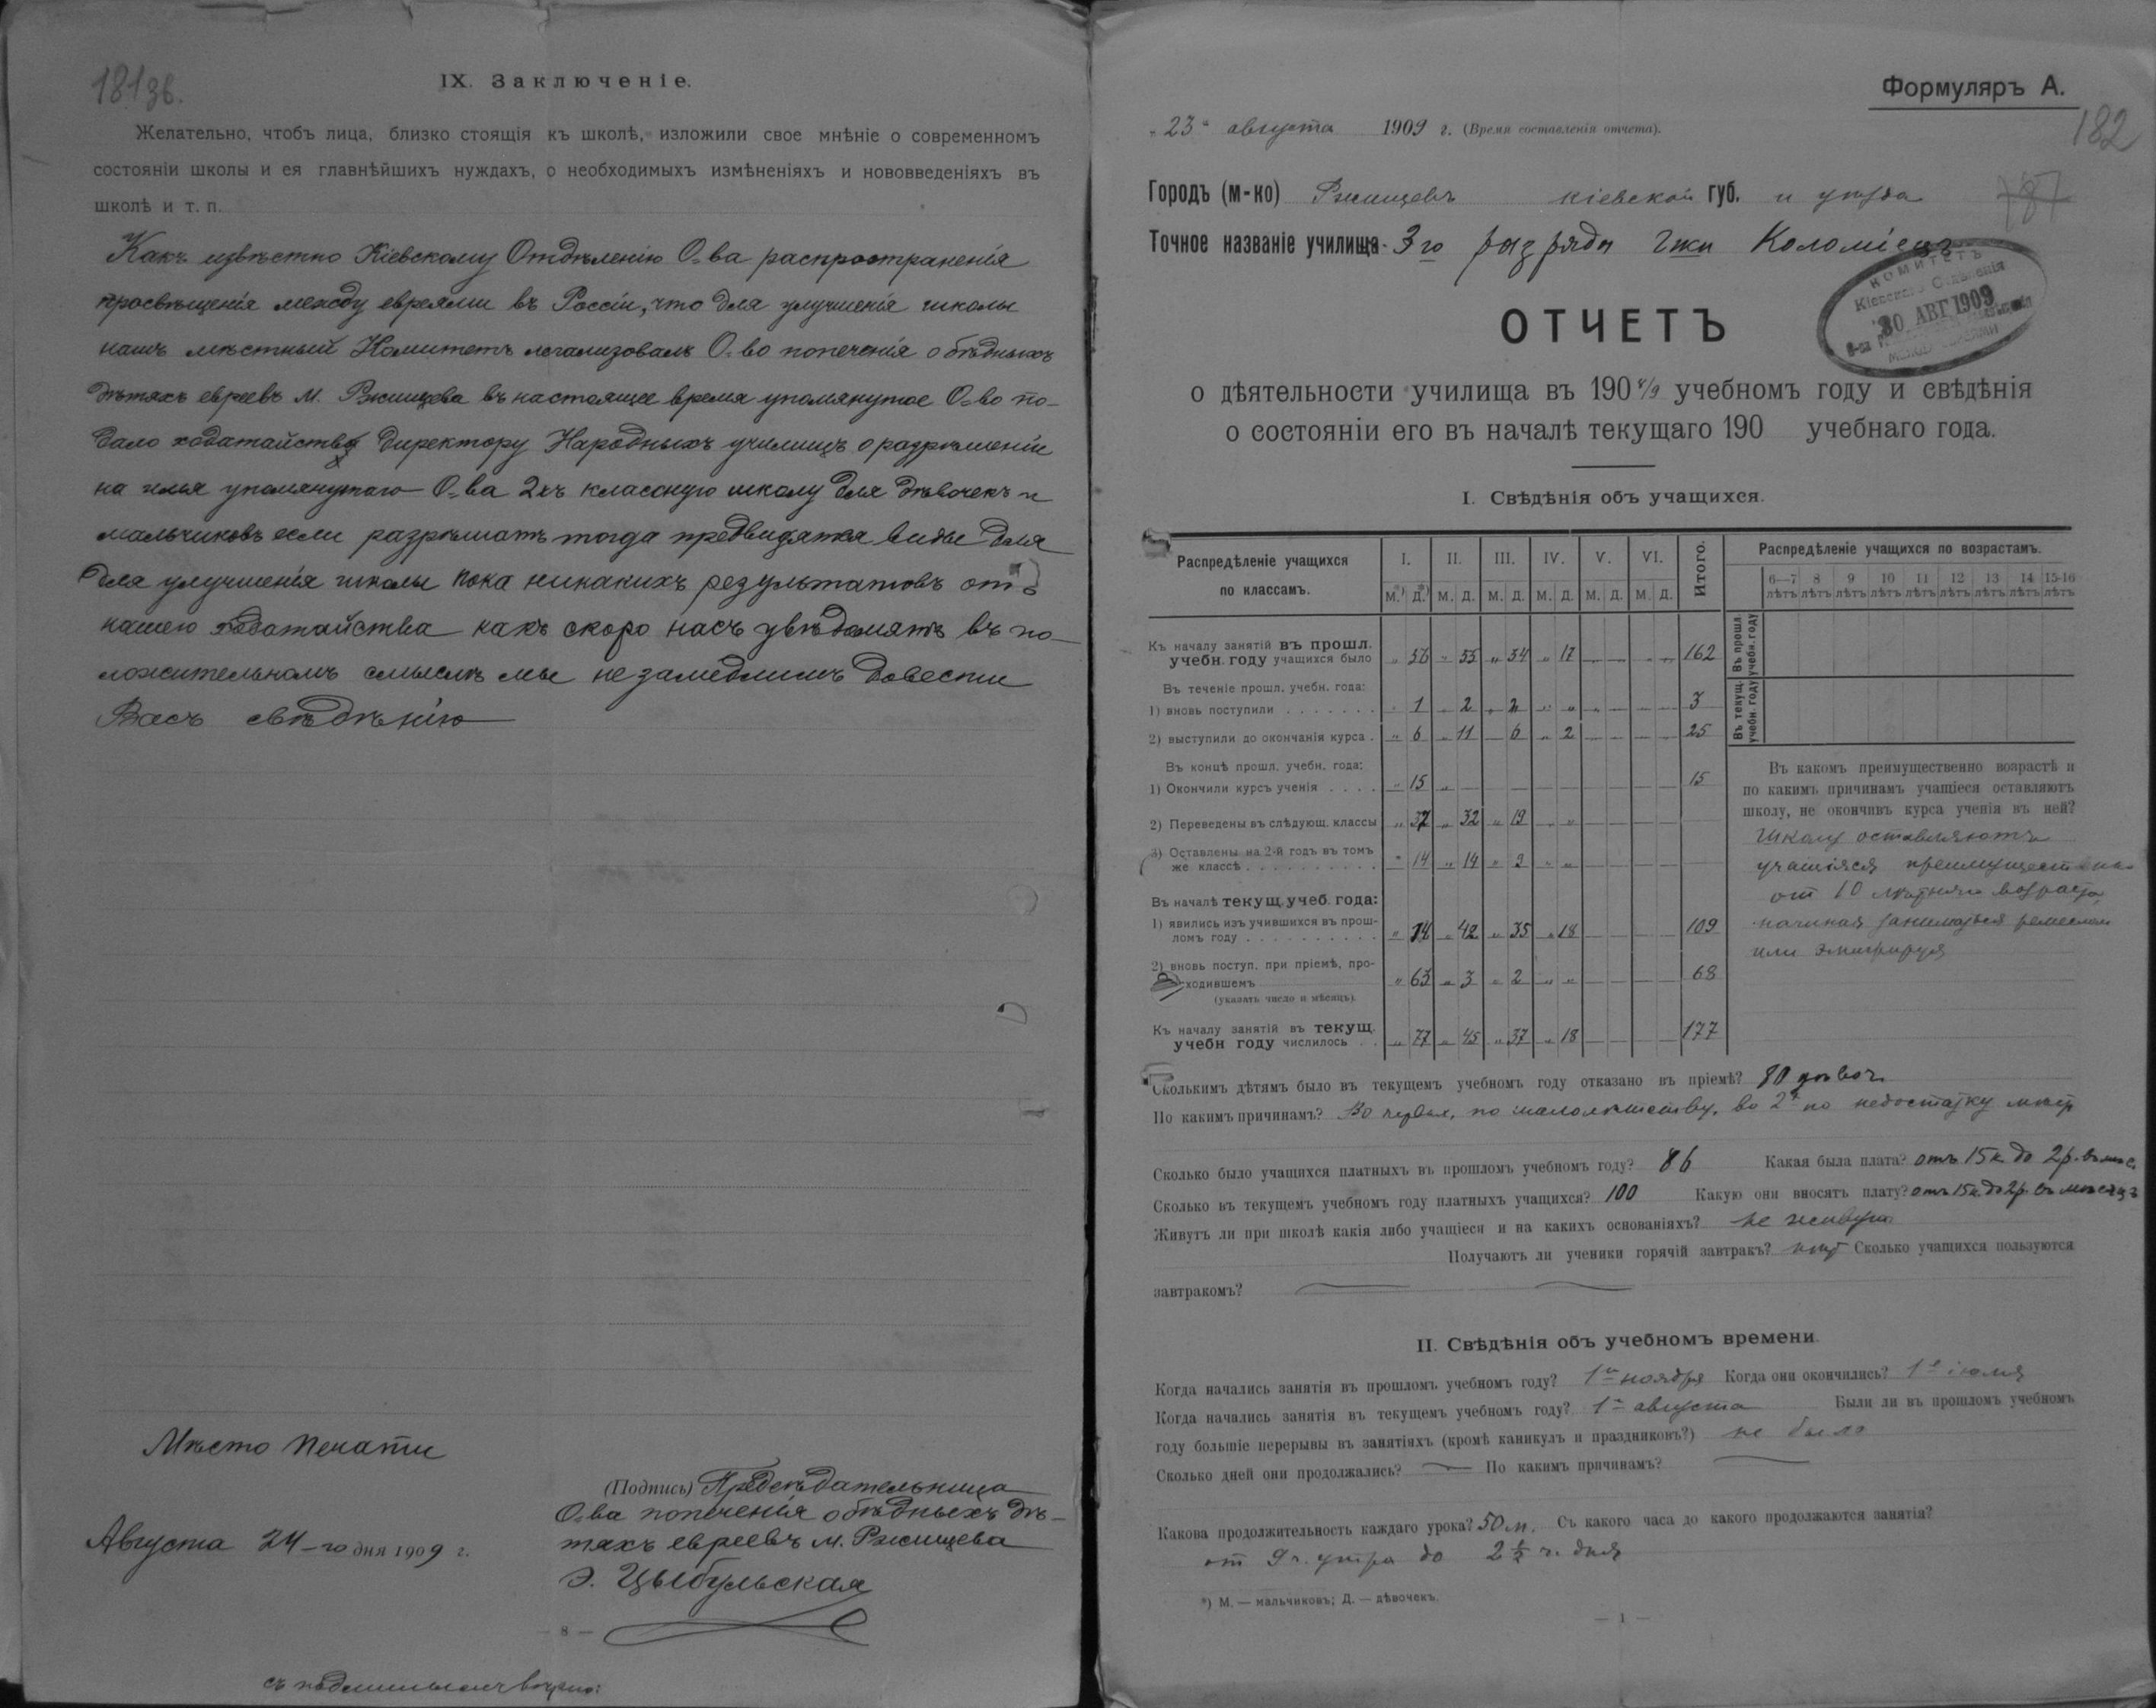 181 зв.
IX. Заключеніе.
Желательно, чтобъ лица, близко стоящія къ школѣ, изложили свое мнѣніе о современномъ
состояніи школы и ея главнѣйшихъ нуждахъ, о необходимыхъ измѣненіяхъ и нововведеніяхъ въ
школѣ и т. п.
Какъ извѣстно Кіевскому Отдѣленію О-ва распространенія
просвѣщенія между евреями въ Россіи, что для улучшенія школы
нашъ мѣстный Комитетъ легализовалъ О-во попеченія о бѣдныхъ
дѣтяхъ евреевъ м. Ржищева въ настоящее время упомянутое О-во по-
дало ходатайство Директору Народныхъ училищъ о разрѣшеніи
на имя упомянутаго О-ва 2хъ классную школу для дѣвочекъ и
мальчиковъ если разрѣшатъ тогда предвидятся виды для
для улучшенія школы пока никакихъ результатовъ отъ
нашего ходатайства какъ скоро насъ увѣдомятъ въ по-
ложительномъ смыслѣ мы не замедлимъ довести
Васъ свѣдѣнію
Мѣсто печати
(Подпись) Предсѣдательница
О-ва попеченія о бѣдныхъ дѣ-
тяхъ евреевъ м. Ржищева
Августа 24-го дня 1909 г.
Э. Цыбульская
— 8 —
съ подлиннымъ вѣрно:
Формуляръ А.
182
"23" августа 1909 г. (Время составленія отчета).
Городъ (м-ко) Ржищевъ кіевской губ. и уѣзда
Точное названіе училища 3го разряда Гжи Коломіецъ
КОМИТЕТЪ
30 АВГ 1909
ОТЧЕТЪ
о дѣятельности училища въ 190 8/9 учебномъ году и свѣдѣнія
о состояніи его въ началѣ текущаго 190 учебнаго года.
I. Свѣдѣнія объ учащихся.
Распредѣленіе учащихся по классамъ. I. II. III. IV. V. VI. Итого.
м.*) д.*) м. д. м. д. м. д. м. д. м. д.
Распредѣленіе учащихся по возрастамъ.
6—7 лѣтъ 8 лѣтъ 9 лѣтъ 10 лѣтъ 11 лѣтъ 12 лѣтъ 13 лѣтъ 14 лѣтъ 15-16 лѣтъ
Въ прошл. учебн. году
Въ текущ. учебн. году
Къ началу занятій въ прошл.
учебн. году учащихся было " 56 " 55 " 34 " 17 162
Въ теченіе прошл. учебн. года:
1) вновь поступили . . . . . . . 1 " 2 " 2 " " 3
2) выступили до окончанія курса . " 6 " 11 — 6 " 2 25
Въ концѣ прошл. учебн. года:
1) Окончили курсъ ученія . . . . " 15 " 15
2) Переведены въ слѣдующ. классы " 37 " 32 " 19 " "
3) Оставлены на 2-й годъ въ томъ
же классѣ . . . . . . . . . . " 14 " 14 " 9 " "
Въ началѣ текущ. учеб. года:
1) явились изъ учившихся въ прош-
ломъ году . . . . . . . . . . " 14 " 42 " 35 " 18 109
2) вновь поступ. при пріемѣ, про-
ходившемъ " 63 " 3 " 2 " " 68
(указать число и мѣсяцъ)
Къ началу занятій въ текущ.
учебн году числилось . . " 77 " 45 " 37 " 18 177
Въ какомъ преимущественно возрастѣ и
по какимъ причинамъ учащіеся оставляютъ
школу, не окончивъ курса ученія въ ней?
Школу оставляютъ
учащіяся преимуществен-
от 10 лѣтняго возраста,
начиная заниматься ремесломъ
или эмигрируя
Сколькимъ дѣтямъ было въ текущемъ учебномъ году отказано въ пріемѣ? 80 дѣвоч.
По какимъ причинамъ? Во первых, по малолѣтству, во 2х по недостатку мѣст
Сколько было учащихся платныхъ въ прошломъ учебномъ году? 86 Какая была плата? отъ 15 к. до 2 р. въ мѣс.
Сколько въ текущемъ учебномъ году платныхъ учащихся? 100 Какую они вносятъ плату? отъ 15 к. до 2 р. въ мѣсяцъ
Живутъ ли при школѣ какія либо учащіеся и на какихъ основаніяхъ? не живут
Получаютъ ли ученики горячій завтракъ? нѣт Сколько учащихся пользуются
завтракомъ?
II. Свѣдѣнія объ учебномъ времени.
Когда начались занятія въ прошломъ учебномъ году? 1го ноября Когда они окончились? 1е іюля
Когда начались занятія въ текущемъ учебномъ году? 1го августа Были ли въ прошломъ учебномъ
году большіе перерывы въ занятіяхъ (кромѣ каникулъ и праздниковъ?) не было
Сколько дней они продолжались? — По какимъ причинамъ? —
Какова продолжительность каждаго урока? 50 м. Съ какого часа до какого продолжаются занятія?
от 9 ч. утра до 2 ½ ч. дня
*) М. — мальчиковъ; Д. — дѣвочекъ.
— 1 —